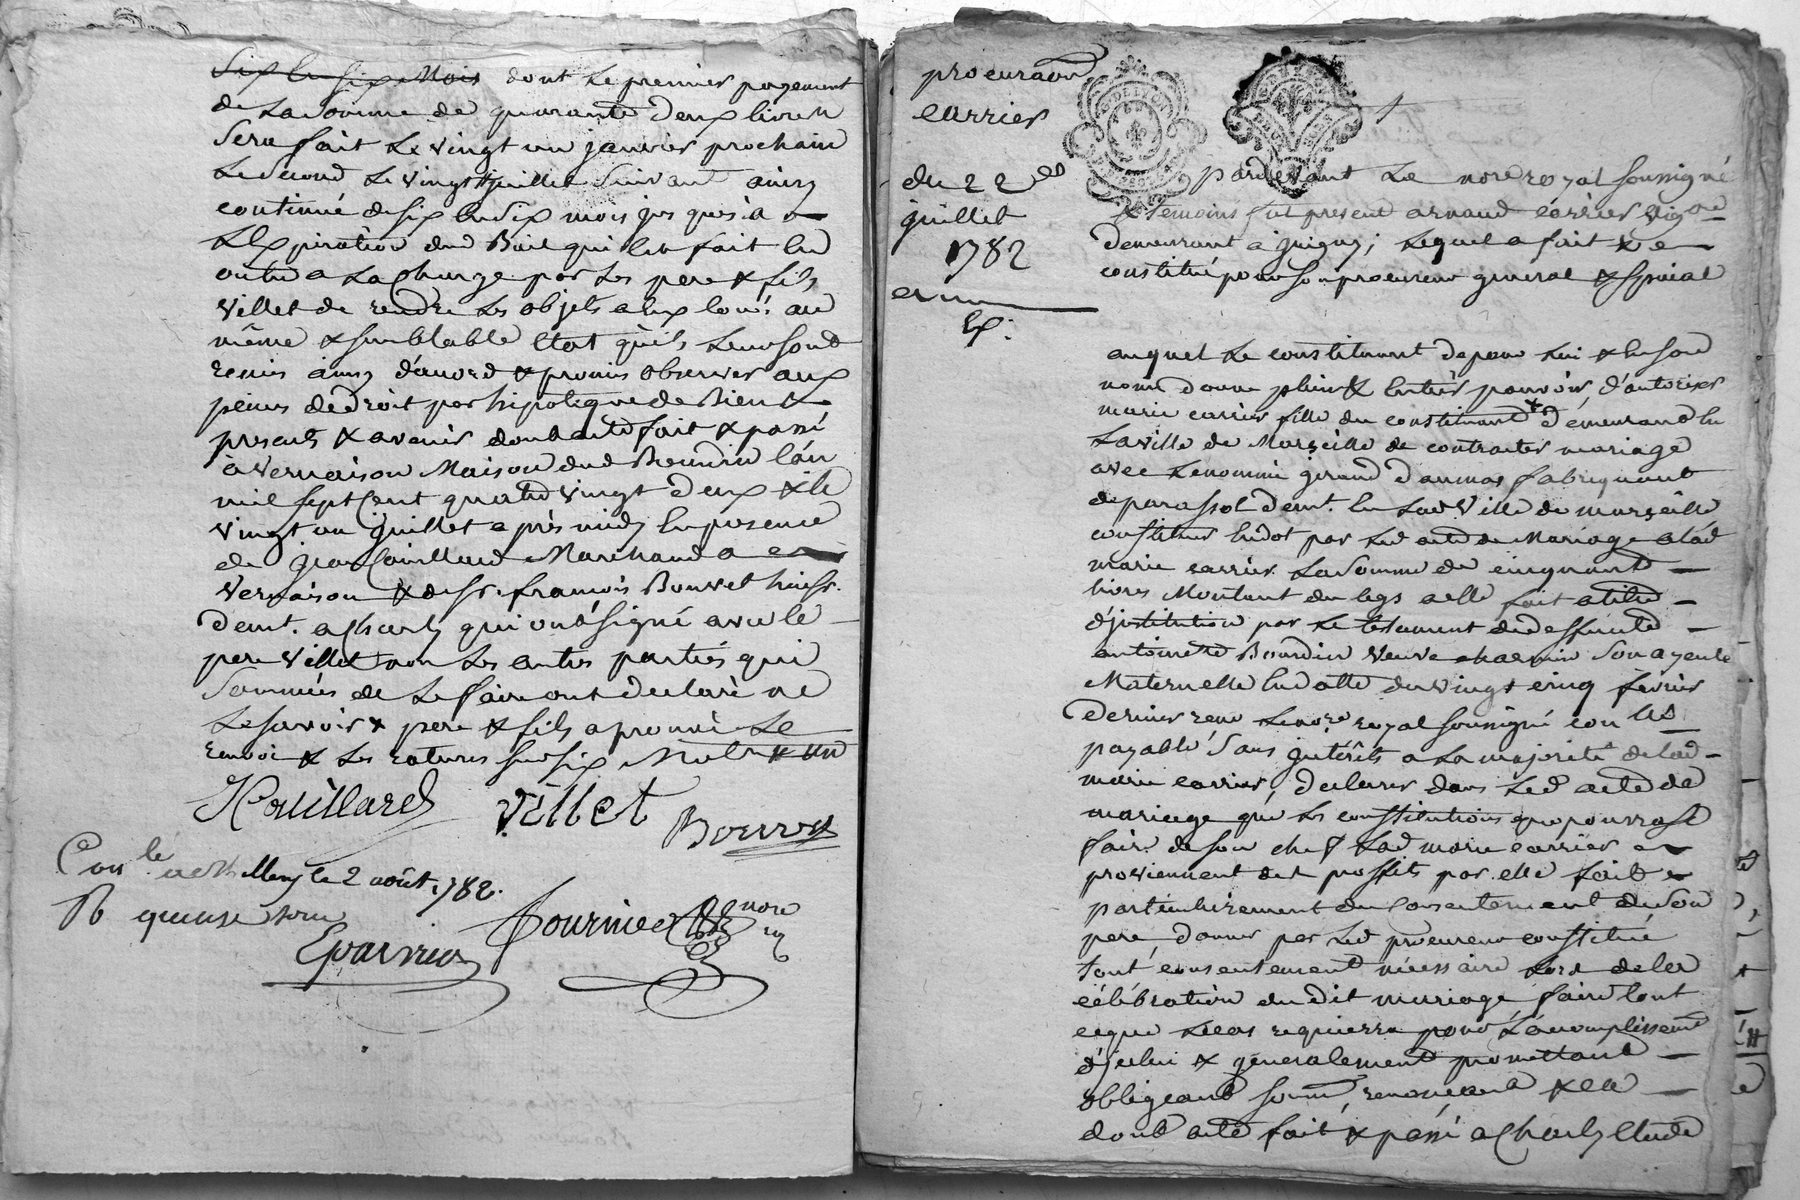 six en six mois dont le premier payement
de la somme de quarante deux livres
sera fait le vingt un janvier prochain
le second le vingt juillet suivant ainsy
continué de six en six mois jusques a
l'expiration dud Bail qui est fait en
outre a la charge par les pere & fils
villet de rendre les objets a eux loué au
même & semblable état qu'ils leur sont
remis ainsy d'acord & promis observer aux
peines de droit par hipoteque de Biens
presents & avenir dont acte fait & passé
à vernaison Maison dud Bourdin l'an
mil sept Cent quatre vingt deux & le
vingt un juillet après midy en presence
de Couillard Marchand a
vernaison & de sr. françois Bouvet huissr.
demt. a Charly qui ont signé avec le
pere villet non les autres parties qui
sommées de le faire ont declaré ne
le savoir & pere & fils aprouvé le
renvoi & les ratures sur six Mots & un
Couillard villet Bouvet
Con.le a Millery le 2 août 1782.
R quinze sous
Eparvier Fournier nore
procuraon
Carrier
du 22
juillet
1782
Ex.
G. DE LYON
pardevant le nore royal soussigné
& temoins fut present arnaud carrier vigon
demeurant a grigny ; lequel a fait &
constitué pour son procureur general & special
auquel le constituant de pour lui & en son
nom donne plein & entier pouvoir, d'autoriser
marie carrier fille du constituant demeurand en
la ville de Marseille de contracter mariage
avec le nommé girard daumas fabriquant
de parassol demt. en lad ville de marseille
constituer en dot par led acte de Mariage a lad
marie carrier la somme de cinquante
livres Montant du legs a elle fait a titre
d'jnstitution par le testament de deffunte
antoinette Bourdin veuve charmin son ayeule
Maternelle en datte du vingt cinq fevrier
dernier reçu le nore royal soussigné
payable sans jnterêts a la majorité de lad
marie carrier, declarer dans led acte de
mariage que les constitutions que pourroit
faire de son chef lad marie carrier
proviennent des proffits par elle faits
particulierement du Consentement de son
pere, donner par led procureur constitué
tout consentement nécessaire lors de la
célébration du dit mariage faire tout
ce que le cas requierra pour l'acomplissemt
d'jcelui & généralement promettant
obligeant soum renonceant & ca
dont acte fait & passé a Charly Etude